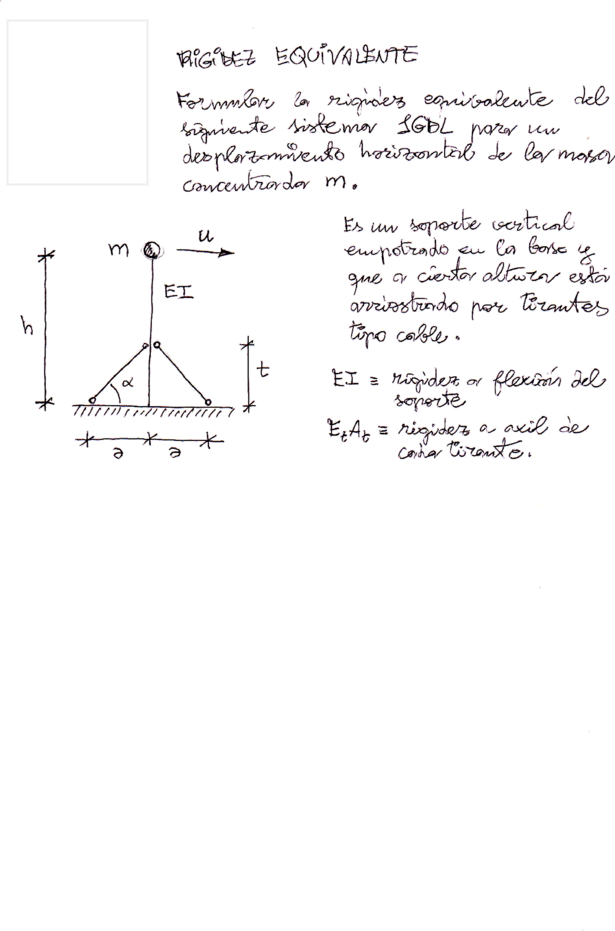 RIGIDEZ EQUIVALENTE
Formular la rigidez equivalente del
siguiente sistema 1GDL para un
desplazamiento horizontal de la masa
concentrada m.
Es un soporte vertical
empotrado en la base y
que a cierta altura está
arriostrado por tirantes
tipo cable.
EI ≡ rigidez a flexión del
soporte
EtAt ≡ rigidez a axil de
cada tirante.
m
u
EI
h
α
t
a
a